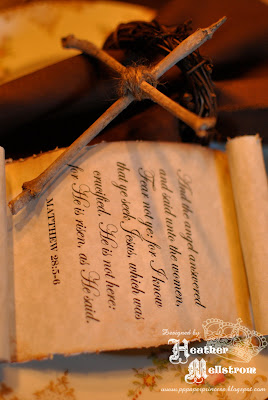 And the angel answered
and said unto the women,
Fear not ye: for I know
that ye seek Jesus, which was
crucified. He is not here:
for He is risen, as He said.
MATTHEW 28:5-6
Designed by
Heather
Hellstrom
www.pppopsprincess.blogspot.com